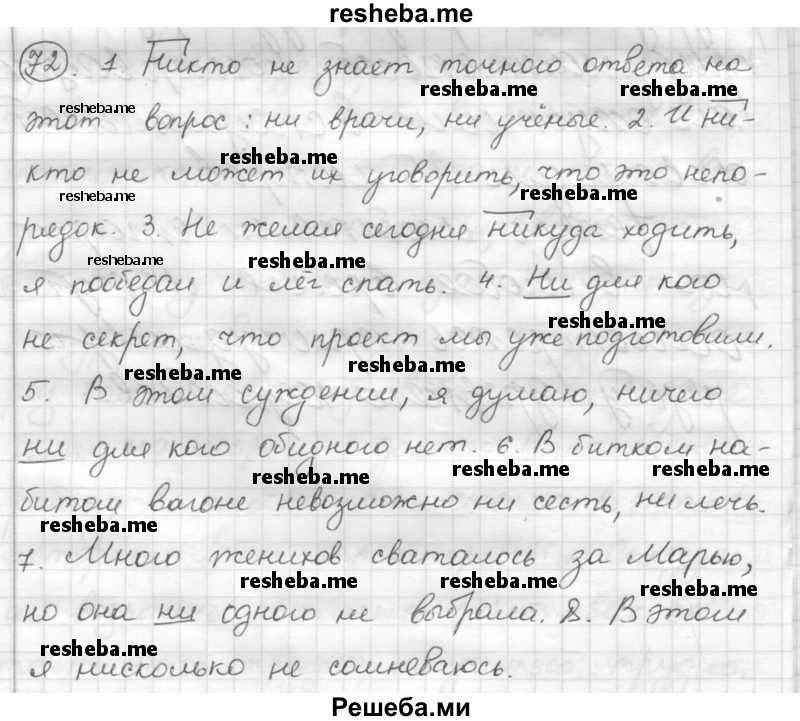 resheba.me
72. 1. Никто не знает точного ответа на
resheba.me resheba.me
resheba.me
этот вопрос: ни врачи, ни учёные. 2. И ни-
resheba.me
кто не может их уговорить, что это непо-
resheba.me resheba.me
рядок. 3. Не желая сегодня никуда ходить,
resheba.me resheba.me
я пообедал и лёг спать. 4. Ни для кого
resheba.me
не секрет, что проект мы уже подготовили.
resheba.me resheba.me
5. В этом суждении, я думаю, ничего
ни для кого обидного нет. 6. В битком на-
resheba.me resheba.me resheba.me
битом вагоне невозможно ни сесть, ни лечь.
resheba.me
7. Много женихов сваталось за Марью,
resheba.me resheba.me resheba.me
но она ни одного не выбрала. 8. В этом
resheba.me
я нисколько не сомневаюсь.
Решеба.ми